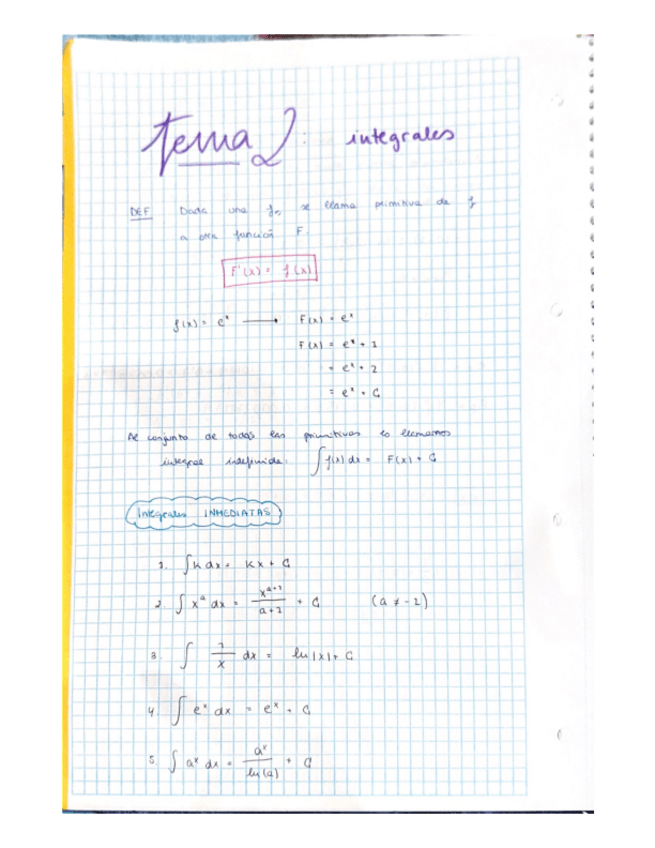 tema 2: integrales
DEF Dada una fn se llama primitiva de f
a otra función F.
F'(x) = f(x)
f(x) = eˣ ⟶ F(x) = eˣ
F(x) = eˣ + 1
= eˣ + 2
= eˣ + C
Al conjunto de todas las primitivas lo llamamos
integral indefinida: ∫f(x) dx = F(x) + C
Integrales INMEDIATAS
1. ∫k dx = kx + C
2. ∫xᵃ dx = xᵃ⁺¹/(a+1) + C (a ≠ -1)
3. ∫ 1/x dx = ln|x| + C
4. ∫eˣ dx = eˣ + C
5. ∫aˣ dx = aˣ/ln(a) + C